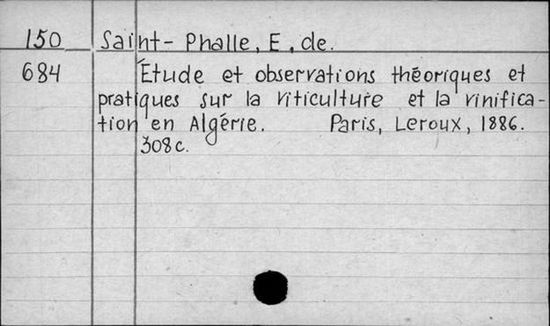 150 Saint-Phalle, E, de.
684 Étude et observations théoriques et
pratiques sur la viticulture et la vinifica-
tion en Algérie. Paris, Leroux, 1886.
308c.